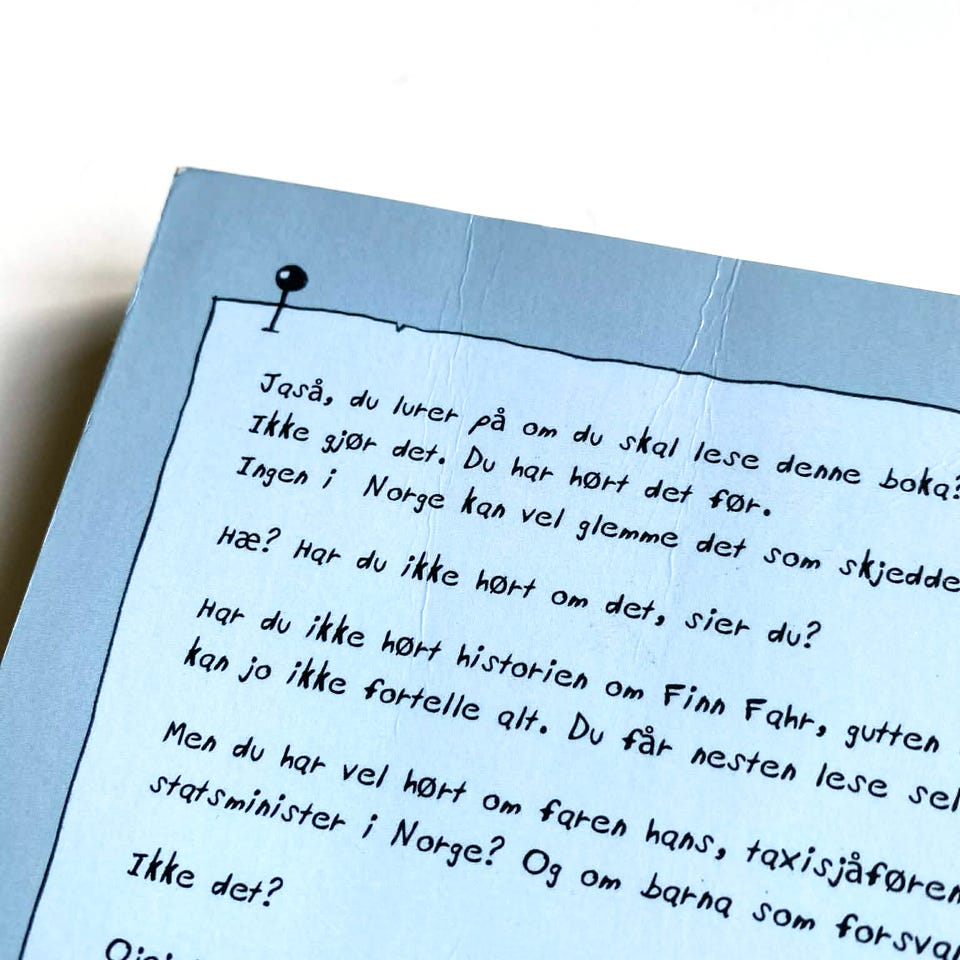 Jaså, du lurer på om du skal lese denne boka?
Ikke gjør det. Du har hørt det før.
Ingen i Norge kan vel glemme det som skjedde
Hæ? Har du ikke hørt om det, sier du?
Har du ikke hørt historien om Finn Fahr, gutten
kan jo ikke fortelle alt. Du får nesten lese
Men du har vel hørt om faren hans, taxisjåføren
statsminister i Norge? Og om barna som
Ikke det?